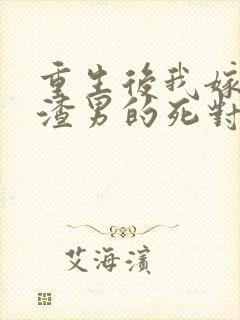 重生後我嫁
渣男的死對
艾海濱